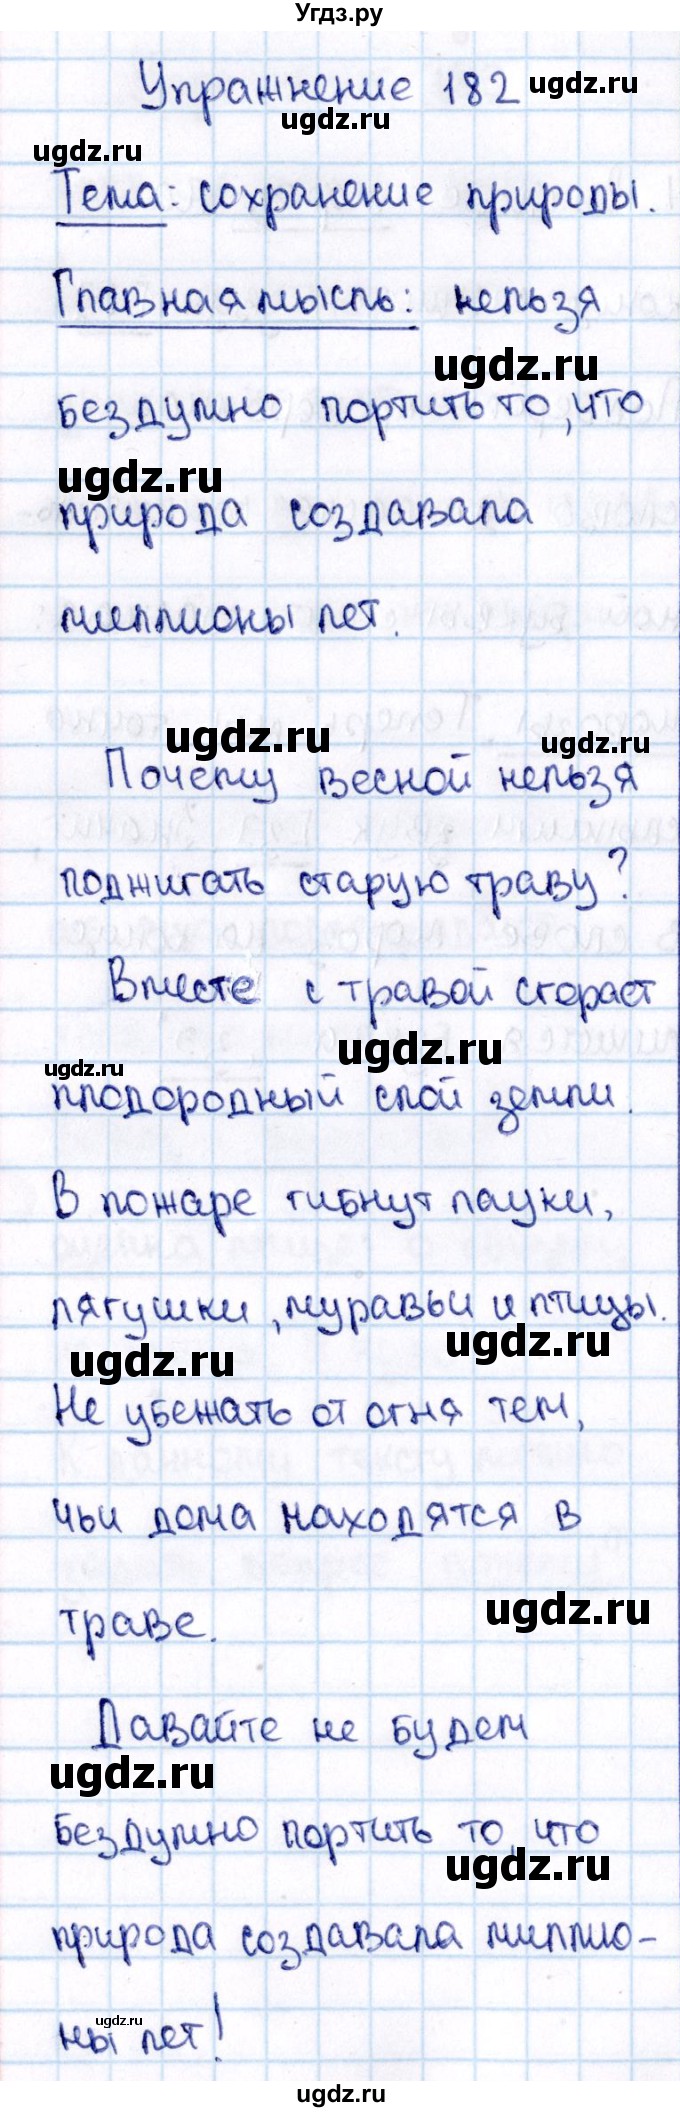 Угдз.ру
Упражнение 182
ugdz.ru
ugdz.ru
ugdz.ru
Тема: сохранение природы.
Главная мысль: нельзя
ugdz.ru
бездумно портить то, что
ugdz.ru
природа создавала
миллионы лет.
ugdz.ru
ugdz.ru
Почему весной нельзя
поджигать старую траву?
Вместе с травой сгорает
ugdz.ru
ugdz.ru
плодородный слой земли.
В пожаре гибнут пауки,
лягушки, муравьи и птицы.
ugdz.ru
ugdz.ru
Не убежать от огня тем,
чьи дома находятся в
ugdz.ru
траве.
Давайте не будем
ugdz.ru
бездумно портить то, что
ugdz.ru
природа создавала миллио-
ugdz.ru
ны лет!
ugdz.ru